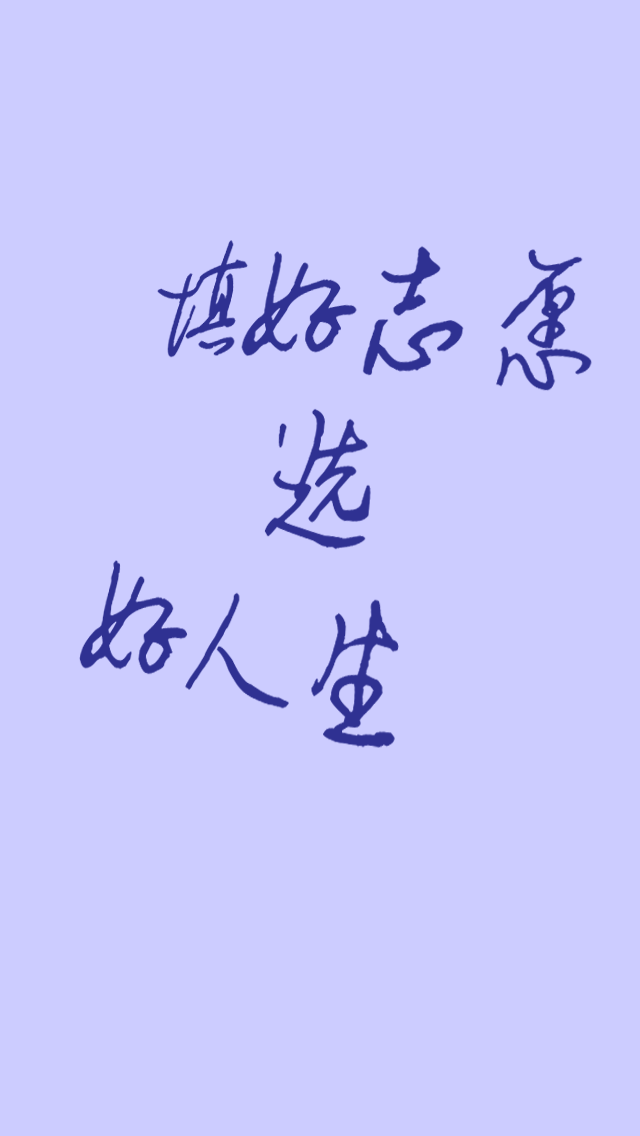 填好志愿
选
好人生